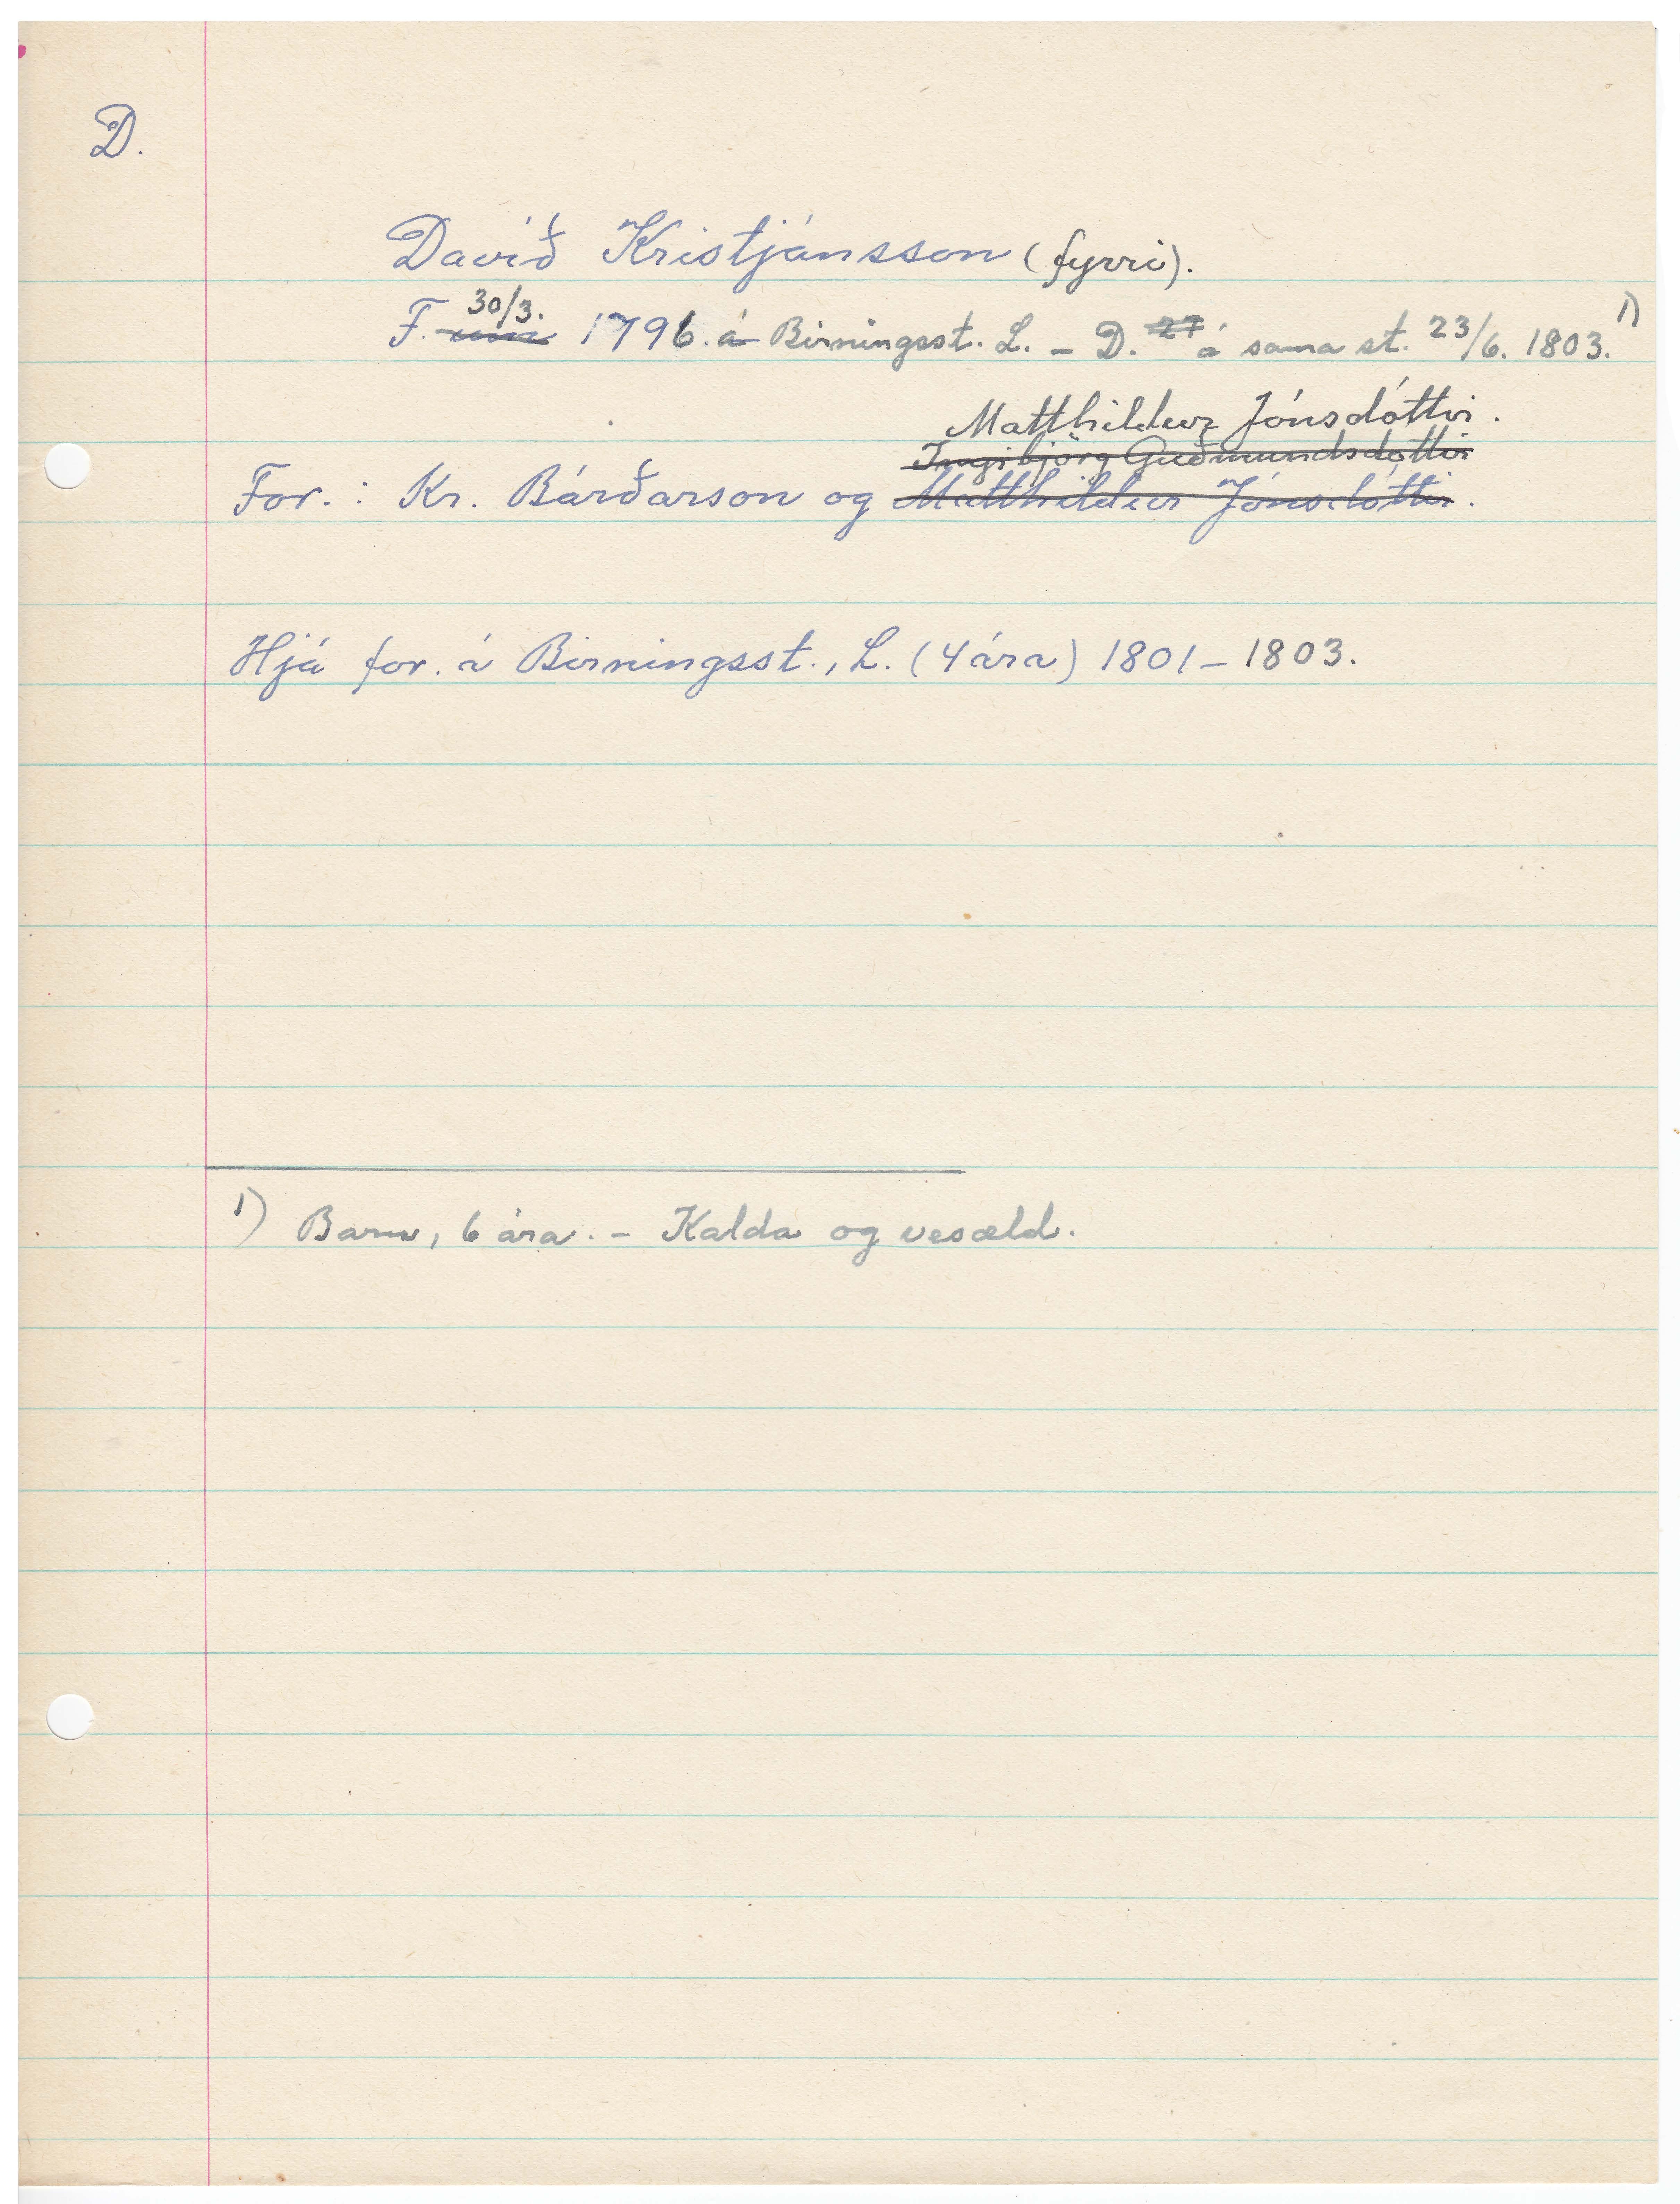 D.
Davíð Kristjánsson (fyrri).
30/3.
F. um 1796. á Birningsst. L. - D. 27 á sama st. 23/6. 1803. 1)
Matthildur Jónsdóttir.
Ingibjörg Guðmundsdóttir
For.: Kr. Bárðarson og Matthildur Jónsdóttir.
Hjá for. á Birningsst., L. (4 ára) 1801-1803.
1) Barn, 6 ára. - Kalda og vesæld.